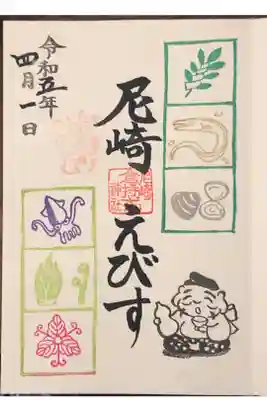 令和五年
四月一日
尼崎
えびす